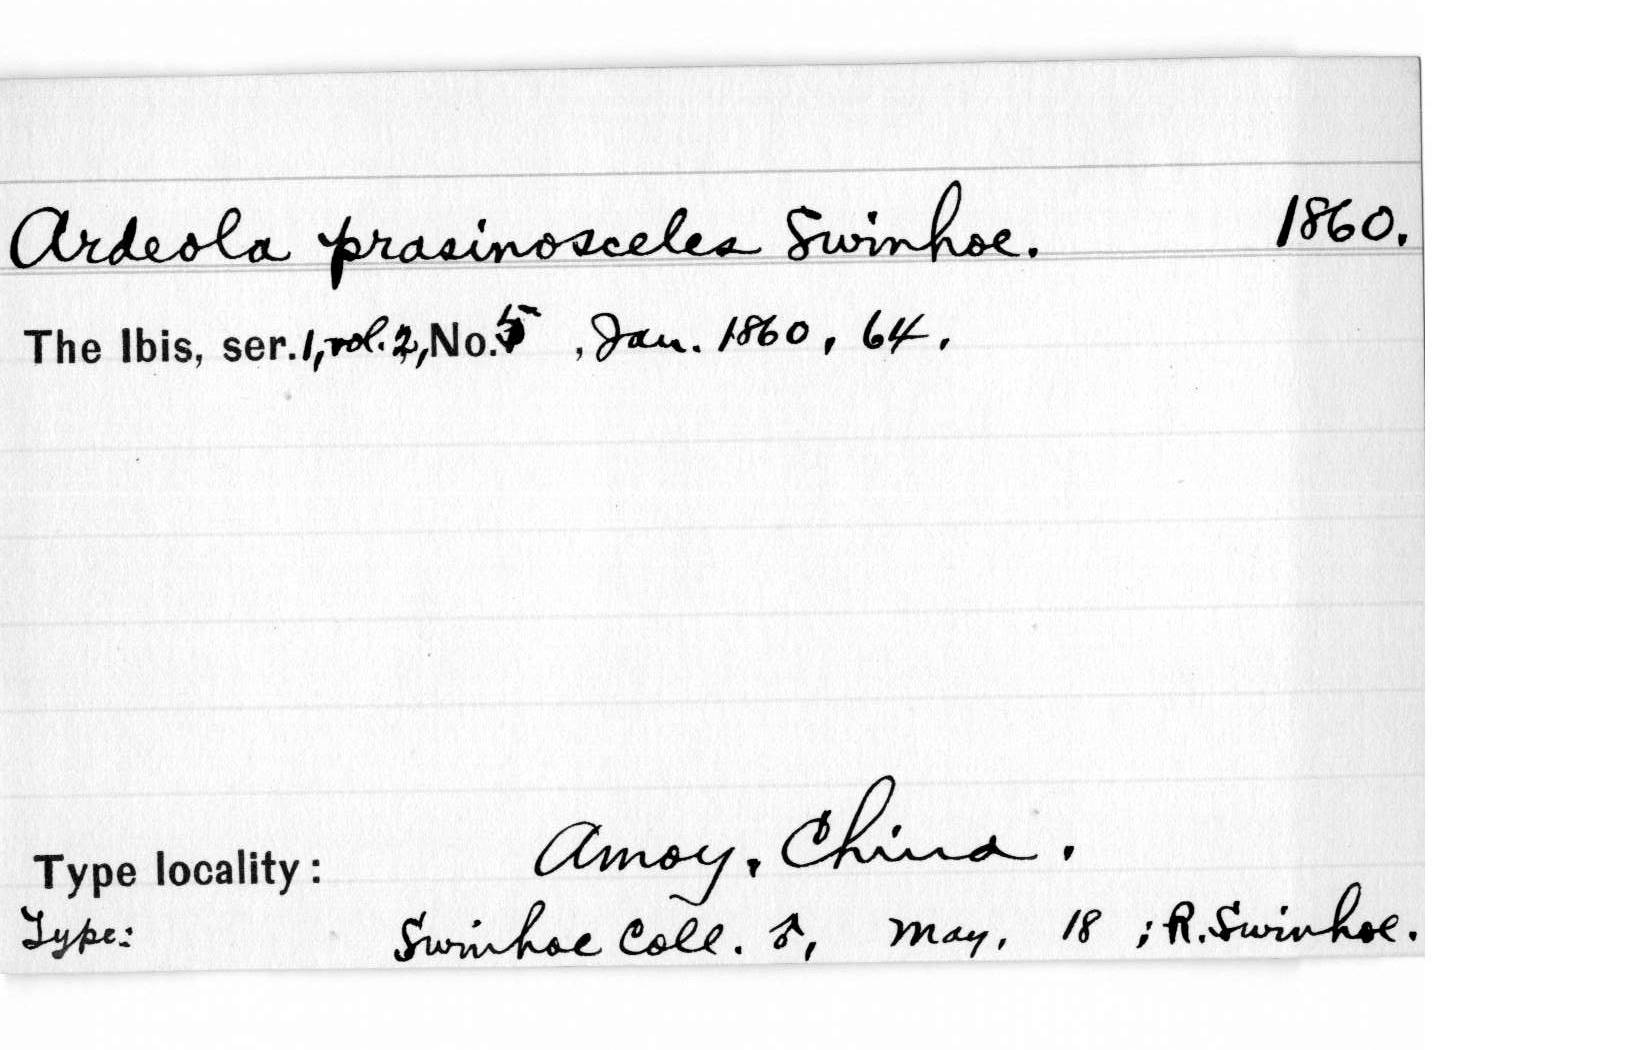 Ardeola prasinosceles Swinhoe. 1860.
The Ibis, ser. 1, vol. 2, No. 5 , Jan. 1860, 64.
Type locality: Amoy, China.
Type: Swinhoe Coll. ♂, May, 18 ; R. Swinhoe.